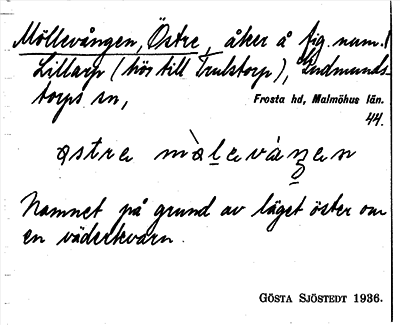 Möllevången, Östre, åker å fig. num. 1
Lillarp (hör till Trulstorp), Gudmunds-
torps sn,
Frosta hd, Malmöhus län.
44.
østrə mø̀lɛvåŋən
Namnet på grund av läget öster om
en väderkvarn.
GÖSTA SJÖSTEDT 1936.